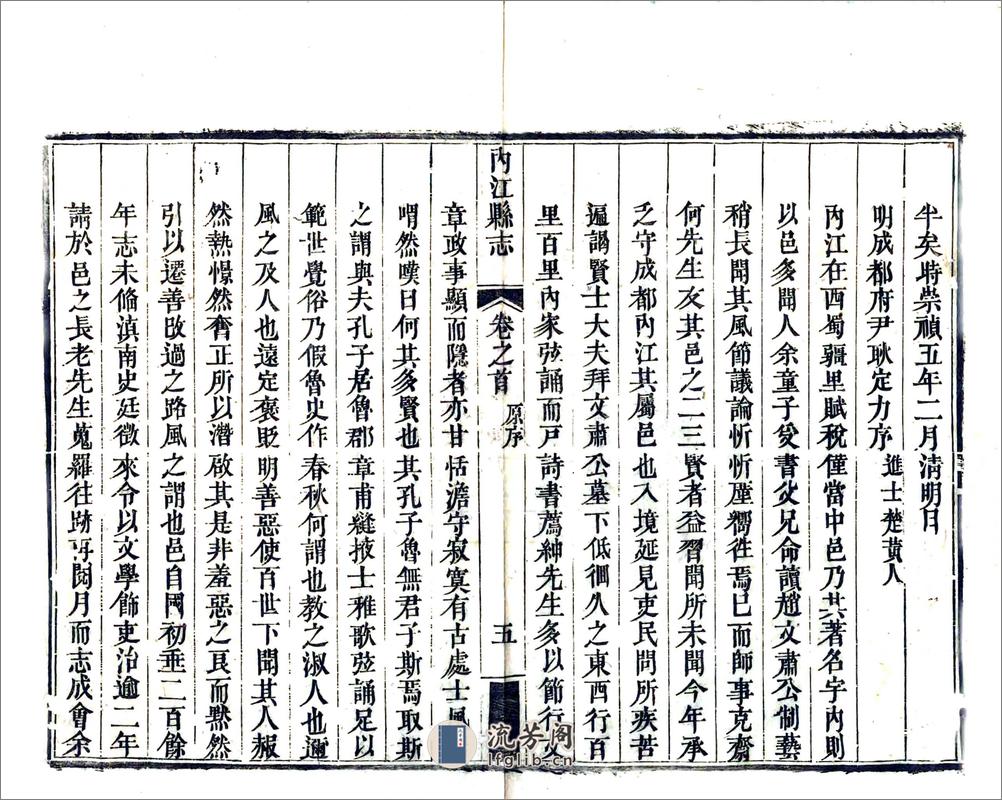 半矣時崇禎五年二月淸明日
明成都府尹耿定力序 進士楚黃人
內江在西蜀疆里賦稅僅當中邑乃其著名字內則
以邑多聞人余童子受書父兄命讀趙文肅公制藝
稍長聞其風節議論忻忻厪嚮徃焉已而師事克齋
何先生友其邑之二三賢者益習聞所未聞今年承
乏守成都內江其屬邑也入境延見吏民問所疾苦
遍謁賢士大夫拜文肅公墓下低徊久之東西行百
里百里內家弦誦而戸詩書薦紳先生多以節行文
內江縣志 卷之首 原序 五
章政事顯而隱者亦甘恬澹守寂寞有古處士風
喟然嘆曰何其多賢也其孔子魯無君子斯焉取斯
之謂與夫孔子居魯郡章甫縫掖士雅歌弦誦足以
範世覺俗乃假魯史作春秋何謂也敎之淑人也邇
風之及人也遠定褒貶明善惡使百世下聞其人赧
然熱憬然齊正所以潛啟其是非羞惡之良而默然
引以遷善改過之路風之謂也邑自國初垂二百餘
年志未脩滇南史廷徵來令以文學飾吏治逾二年
請於邑之長老先生蒐羅往跡再閱月而志成會余
流芳阁
lfglib.cn